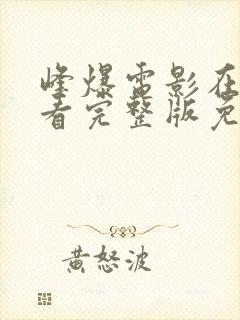 峰爆电影在
看完整版免
黄怒波